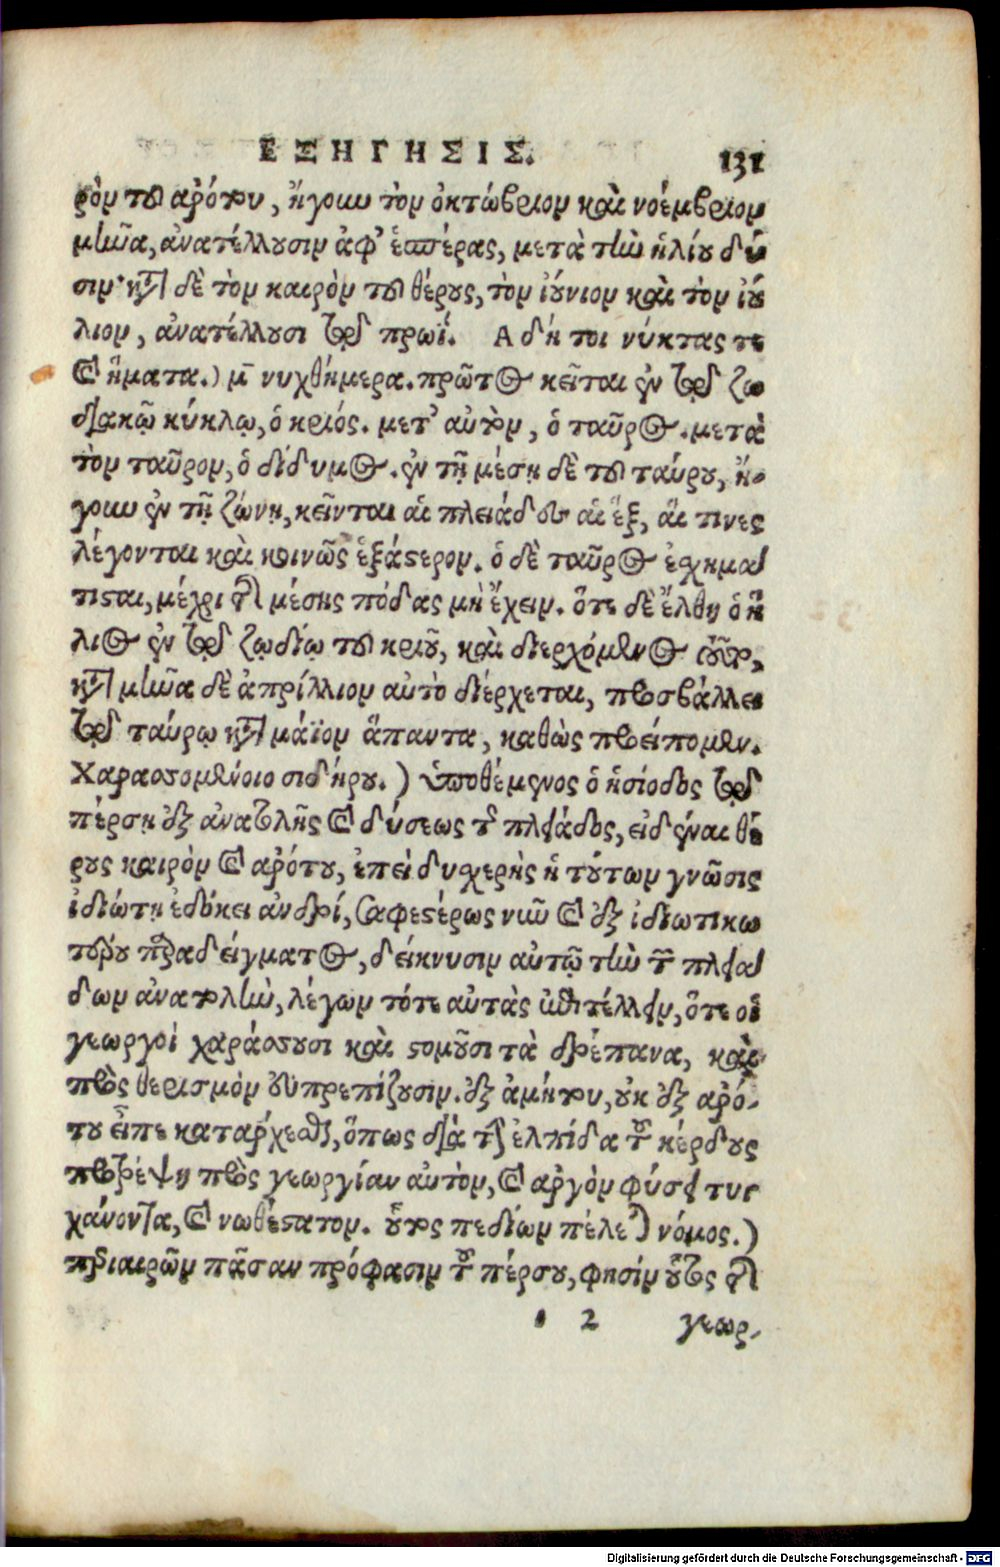 ΕΞΗΓΗΣΙΣ. 131
ρὸν τοῦ ἀρότου, ἤγουν τὸν ὀκτώβριον καὶ νοέμβριον
μῆνα, ἀνατέλλουσιν ἀφ' ἑσπέρας, μετὰ τὴν ἡλίου δύ
σιν· κατὰ δὲ τὸν καιρὸν τοῦ θέρους, τὸν ἰούνιον καὶ τὸν ἰού
λιον, ἀνατέλλουσι τῷ πρωΐ. Α δή τοι νύκτας τε
καὶ ἤματα.) μ̄ νυχθήμερα. πρῶτος κεῖται ἐν τῷ ζω
διακῷ κύκλῳ, ὁ κριός. μετ' αὐτὸν, ὁ ταῦρος. μετὰ
τὸν ταῦρον, ὁ δίδυμος. ἐν τῇ μέσῃ δὲ τοῦ ταύρου, ἤ-
γουν ἐν τῇ ζώνῃ, κεῖνται αἱ πλειάδες αἱ ἓξ, αἵ τινες
λέγονται καὶ κοινῶς ἑξάστερον. ὁ δὲ ταῦρος ἐσχημά
τισται, μέχρι τῆς μέσης πόδας μὴ ἔχειν. ὅτε δὲ ἔλθῃ ὁ ἥ
λιος ἐν τῷ ζῳδίῳ τοῦ κριοῦ, καὶ διερχόμενος οὗτος,
κατὰ μῆνα δὲ ἀπρίλλιον αὐτὸ διέρχεται, προσβάλλει
τῷ ταύρῳ κατὰ μάϊον ἅπαντα, καθὼς προείπομεν.
Χαρασσομένοιο σιδήρου.) ὑποθέμενος ὁ ἡσίοδος τῷ
πέρσῃ ἐξ ἀνατολῆς καὶ δύσεως τῆς πλειάδος, εἰδέναι θέ
ρους καιρὸν καὶ ἀρότου, ἐπεὶ δυσχερὴς ἡ τούτων γνῶσις
ἰδιώτῃ ἐδόκει ἀνδρί, σαφεστέρως νῦν καὶ ἐξ ἰδιωτικω
τέρου παραδείγματος, δείκνυσιν αὐτῷ τὴν τῶν πλειά
δων ἀνατολὴν, λέγων τότε αὐτὰς ἐπιτέλλειν, ὅτε οἱ
γεωργοὶ χαράσσουσι καὶ στομοῦσι τὰ δρέπανα, καὶ
πρὸς θερισμὸν εὐπρεπίζουσιν. ἐξ ἀμήτου, οὐκ ἐξ ἀρό-
του εἶπε κατάρχεσθαι, ὅπως διὰ τὴν ἐλπίδα τοῦ κέρδους
προτρέψῃ πρὸς γεωργίαν αὐτὸν, καὶ ἀργὸν φύσει τυγ
χάνοντα, καὶ νωθέστατον. οὗτος πεδίων πέλεται νόμος.)
περιαιρῶν πᾶσαν πρόφασιν τοῦ πέρσου, φησὶν οὗτος τῆς
1 2 γεωρ-
Digitalisierung gefördert durch die Deutsche Forschungsgemeinschaft - DFG